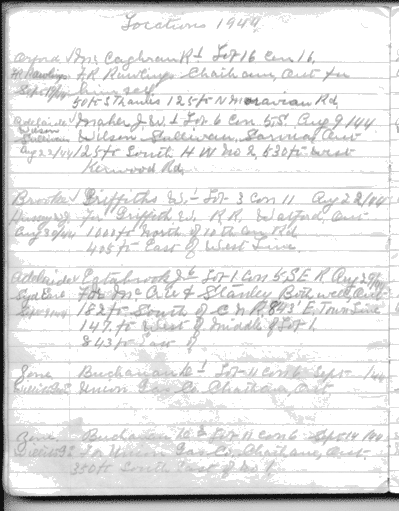 Locations 1944
Orford Mc Caghran R 1 Lot 16 Con 16,
F R Rawlings F. R. Rawlings Chatham, Ont for
Sept 19/44 himself
50 ft S Thanks 125 ft N Moravian Rd,
Adelaide Maher J. W. 1 Lot 6 Con 5 S. Aug 9/44
Wilson Sullivan Wilson, Sullivan, Sarnia, Ont
Aug 22/44 125 ft South H W No 2, 530 ft West
Kerwood Rd,
Brooke Griffiths W. 1 Lot 3 Con 11 Aug 22/44
for Griffith W, R. R. Watford, Ont
Aug 30/44 1000 ft North of 10th Con Rd
405 ft East of West Line.
Adelaide Lot 1 Con 5 S E R Aug 29/44
Syd For Mc & Stanley Bothwell, Ont
182 ft South of C N R 843 E, Town Line
147 ft West of middle of Lot 1.
843 ft East of
Zone Buchanan 1 Lot 11 Con 6 Sept /44
Union Gas Co. Chatham, Ont
Zone, Buchanan 2 Lot 11 Con 6 Sept 14/44
for Union Gas Co. Chatham, Ont
350 ft South East of No 1